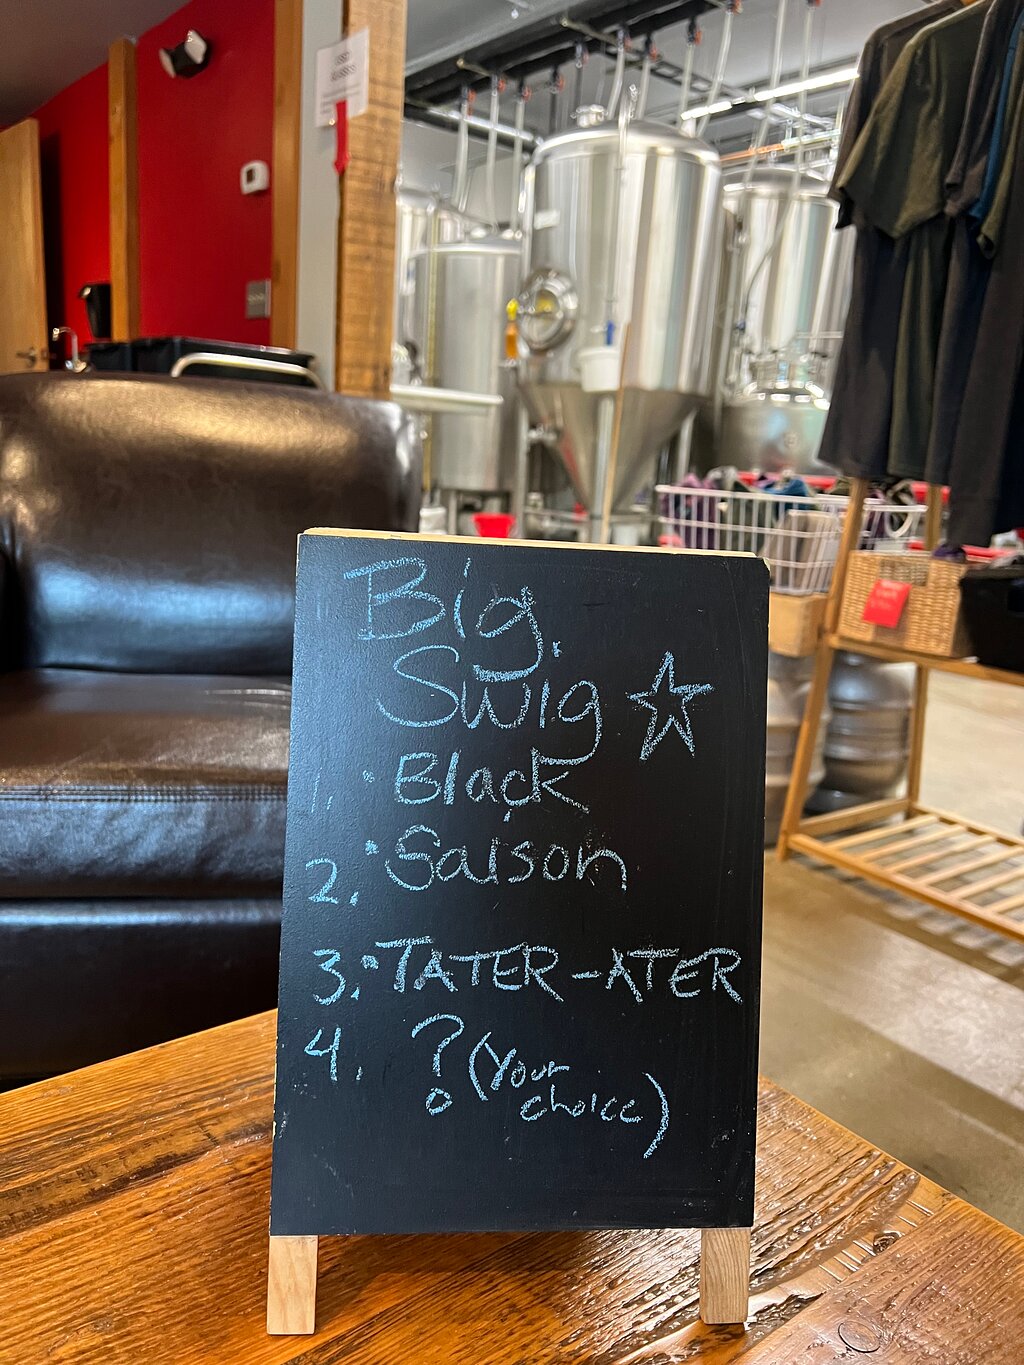 Big
Swig
1. Black
2. Saison
3. TATER-ATER
4. ? (Your
choice)
USED
GLASSES